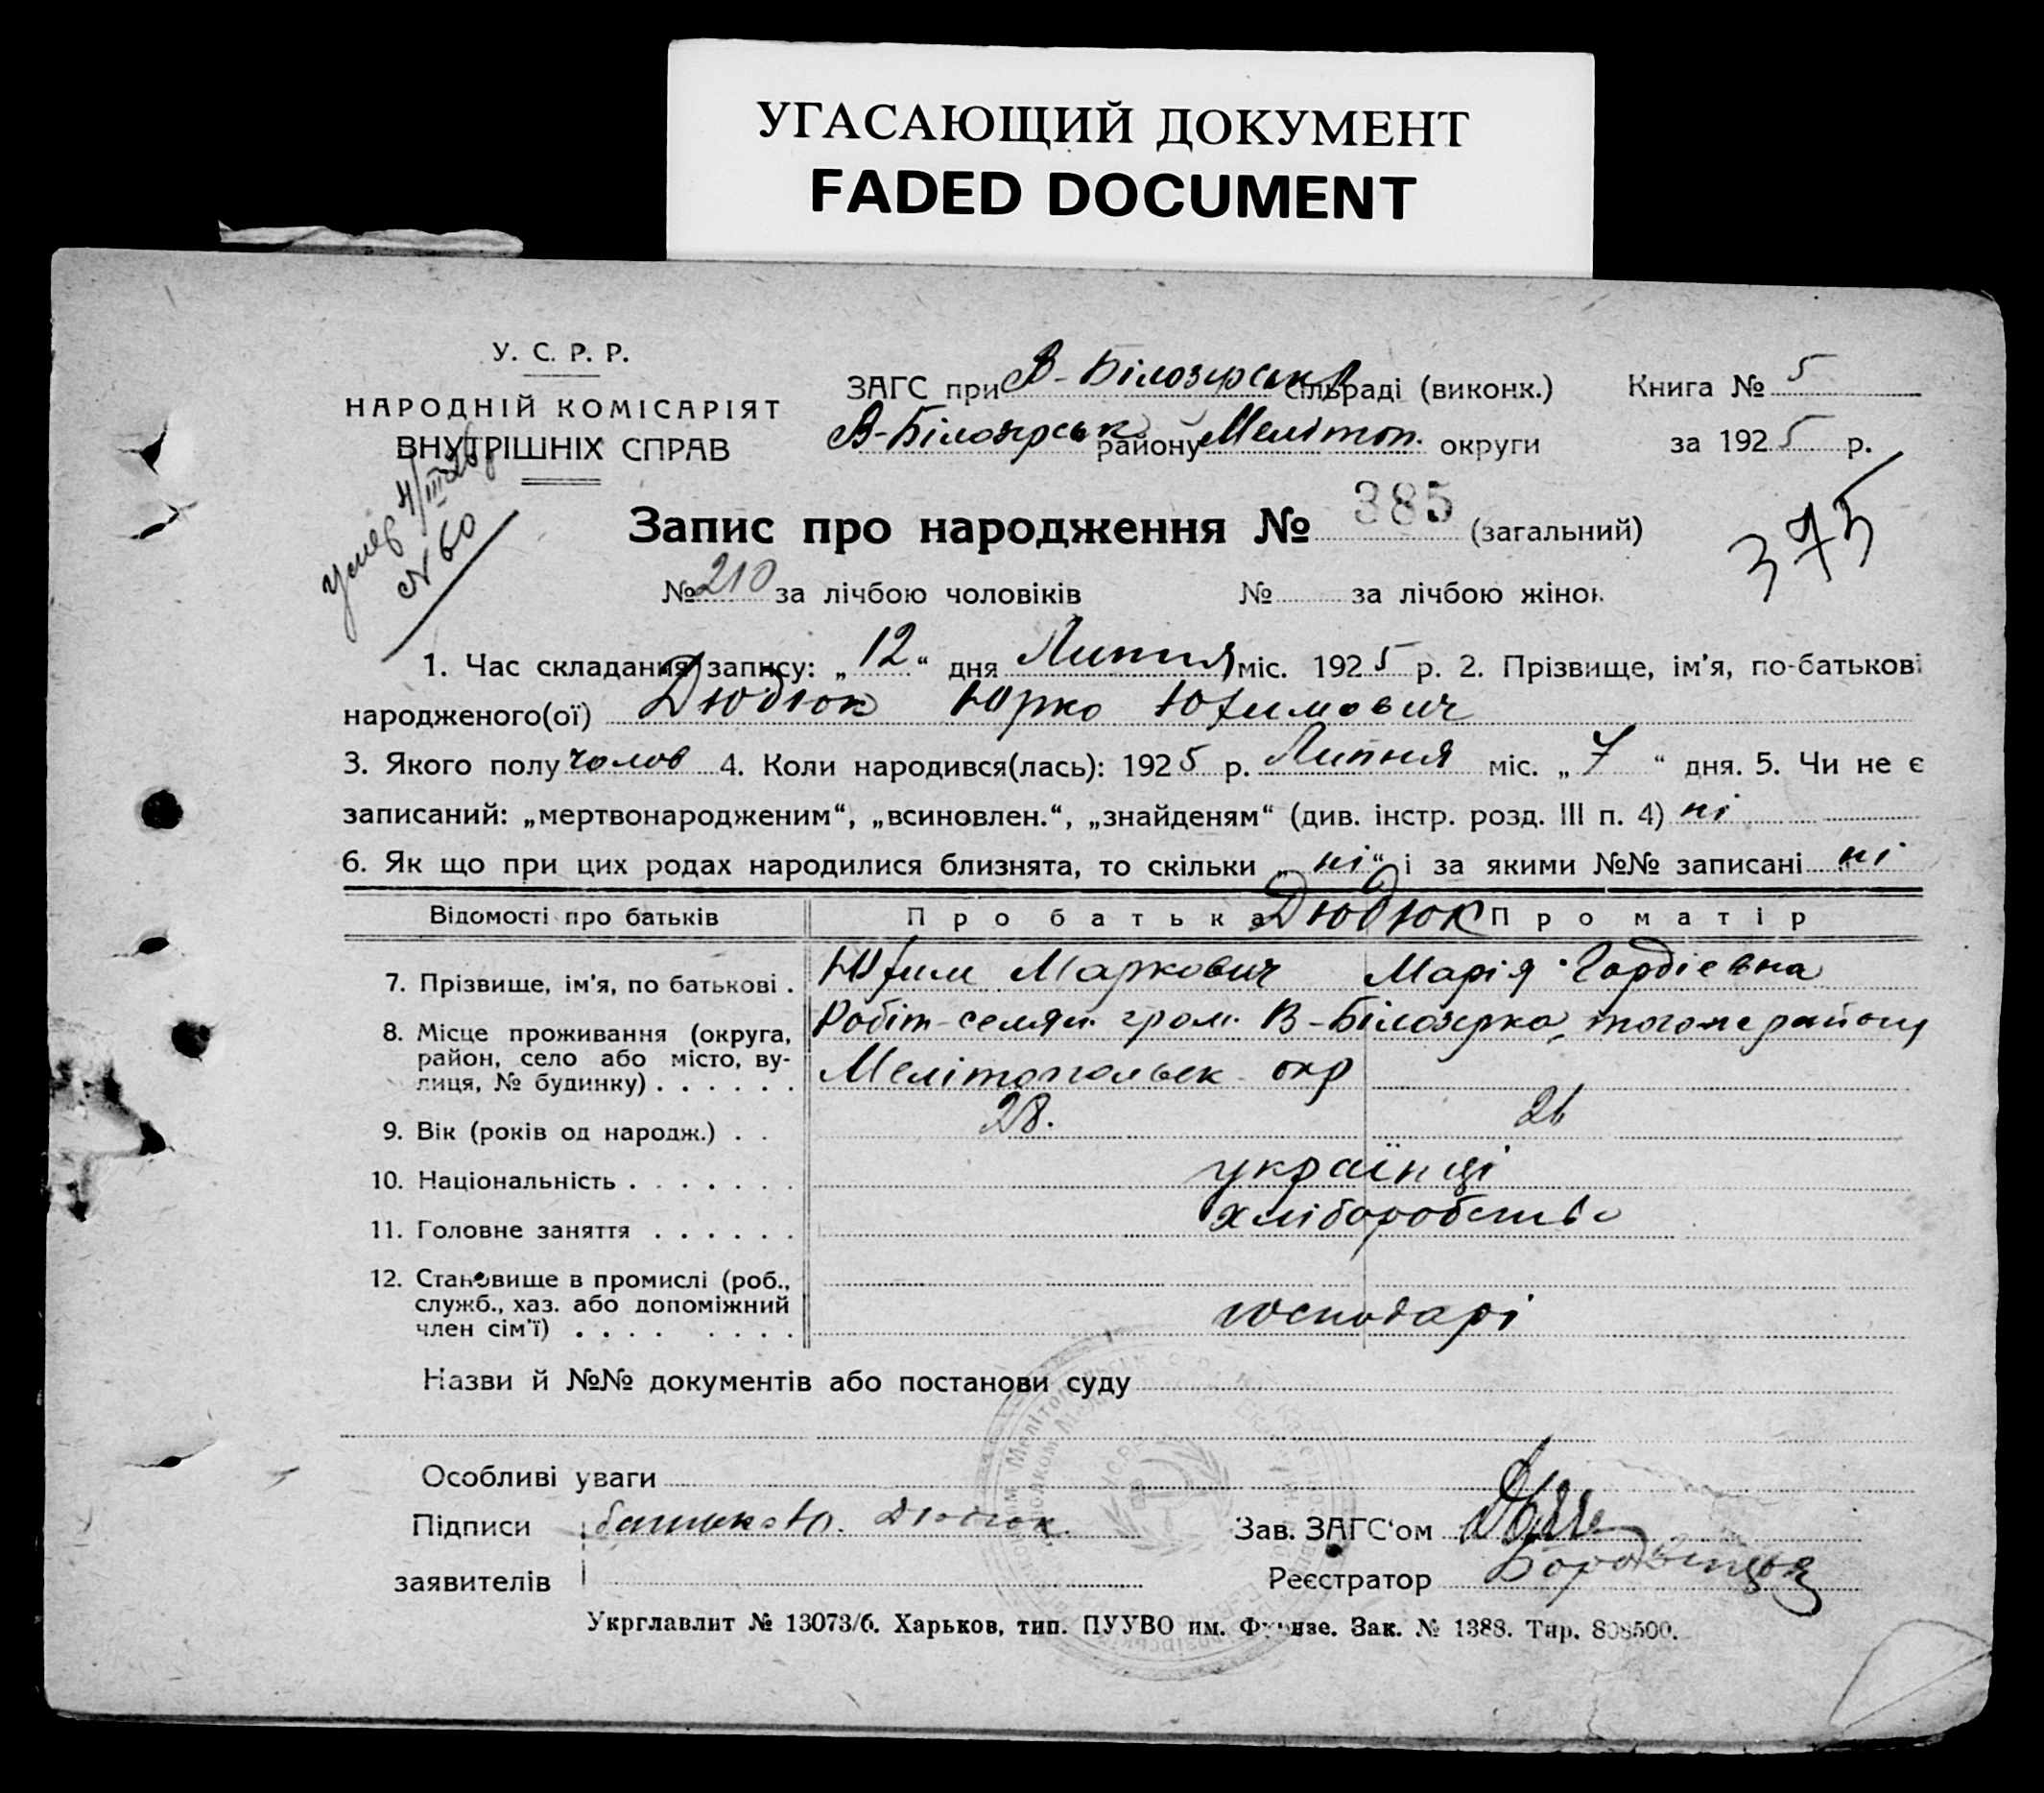 УГАСАЮЩИЙ ДОКУМЕНТ
FADED DOCUMENT
У. С. Р. Р.
НАРОДНІЙ КОМІСАРІЯТ
ВНУТРІШНІХ СПРАВ
ЗАГС при В-Білозерській сільраді (виконк.)
Книга № 5
В-Білозерськ району Меліտոп. округи
за 1925 р.
умер 4/III 26 р
№ 60
Запис про народження № 385 (загальний)
375
№ 210 за лічбою чоловіків № за лічбою жінок
1. Час складання запису: „12“ дня Липня міс. 1925 р. 2. Прізвище, ім'я, по-батькові
народженого(ої) Дюдюк Юрко Юхимович
3. Якого полу чолов 4. Коли народився(лась): 1925 р. Липня міс. „7“ дня. 5. Чи не є
записаний: „мертвонародженим“, „всиновлен.“, „знайденям“ (див. інстр. розд. III п. 4) ні
6. Як що при цих родах народилися близнята, то скільки „ні“ і за якими №№ записані ні
Відомості про батьків Про батька Дюдюк Про матір
7. Прізвище, ім'я, по батькові . Юхим Маркович Марія Гордієвна
8. Місце проживання (округа, район, село або місто, вулиця, № будинку) . . . . . . Робіт-селян. гром. В-Білозерка, того же району
Мелітопольськ окр
9. Вік (років од народж.) . . 28. 26
10. Національність . . . . . . . українці
11. Головне заняття . . . . . . хліборобство
12. Становище в промислі (роб., служб., хаз. або допоміжний член сім'ї) . . . . . . . . господарі
Назви й №№ документів або постанови суду
Особливі уваги
Підписи заявителів батько Ю. Дюдюк
Зав. ЗАГС'ом
Реєстратор
Укрглавлит № 13073/б. Харьков, тип. ПУУВО им. Фрунзе. Зак. № 1388. Тир. 808500.